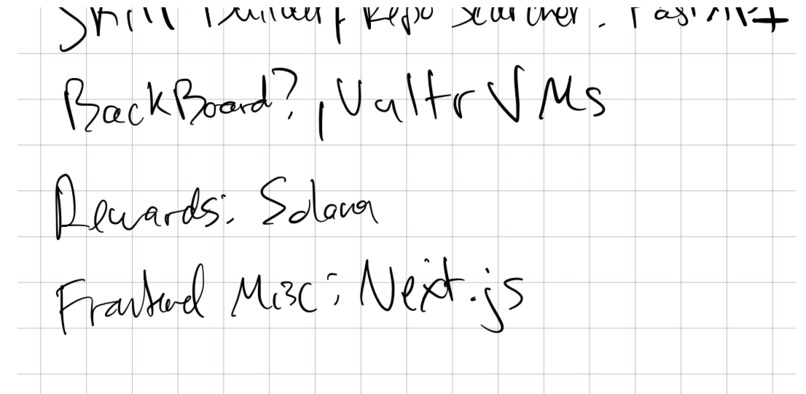 Skill Builder / Repo Searcher: FastAPI +
BackBoard?, Vultr VMs
Rewards: Solana
Frontend Misc: Next.js